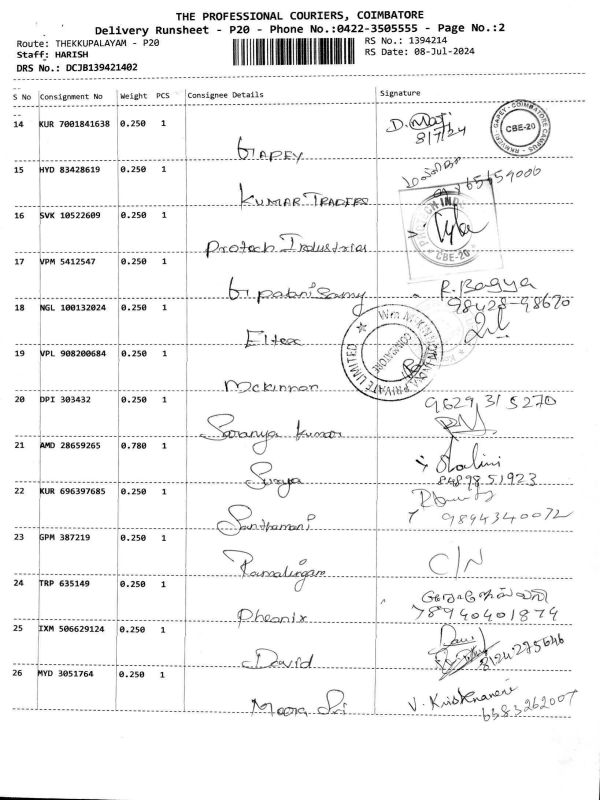 THE PROFESSIONAL COURIERS, COIMBATORE
Delivery Runsheet - P20 - Phone No.:0422-3505555 - Page No.:2
Route: THEKKUPALAYAM - P20
Staff: HARISH
DRS No.: DCJB139421402
RS No.: 1394214
RS Date: 08-Jul-2024
S No Consignment No Weight PCS Consignee Details Signature
14 KUR 7001841638 0.250 1
8/7/24
CBE-20
GAPEY
15 HYD 83428619 0.250 1
KUMAR TRADERS
16 SVK 10522609 0.250 1
CBE-20
Protech Industries
17 VPM 5412547 0.250 1
R. Bagya
G palanisamy
98428-98670
18 NGL 100132024 0.250 1
Eltex
PRIVATE LIMITED
COIMBATORE
19 VPL 908200684 0.250 1
Mckinnon
20 DPI 303432 0.250 1
9629 315270
Saranya kumar
21 AMD 28659265 0.780 1
Shalini
Surya
8489851923
22 KUR 696397685 0.250 1
9894340072
Santhamani
23 GPM 387219 0.250 1
C/N
Ramalingam
24 TRP 635149 0.250 1
78940401874
Pheonix
25 IXM 506629124 0.250 1
8124275646
David
26 MYD 3051764 0.250 1
V. Krishnaveni
Meera Sri
6383262007